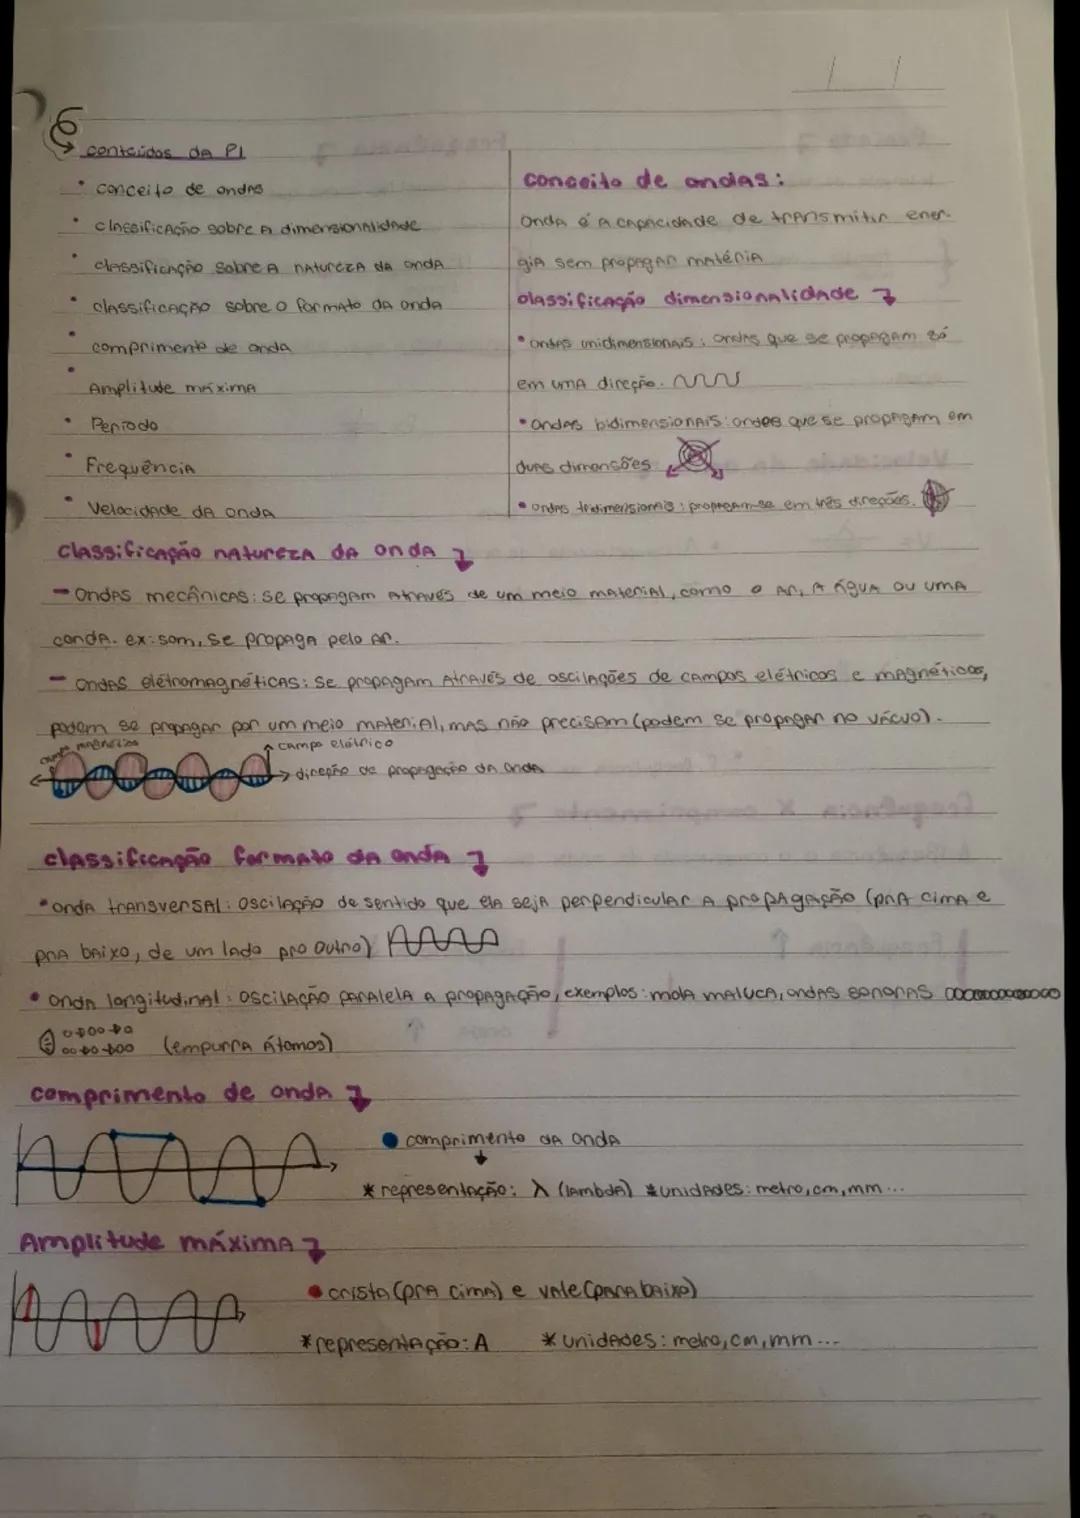 conteúdos da P1
• conceito de ondas
• classificação sobre a dimensionalidade
• classificação sobre a natureza da onda
• classificação sobre o formato da onda
• comprimento de onda
• Amplitude máxima
• Período
• Frequência
• Velocidade da onda
conceito de ondas:
onda é a capacidade de transmitir ener-
gia sem propagar matéria
classificação dimensionalidade
• ondas unidimensionais: ondas que se propagam só
em uma direção.
• ondas bidimensionais: ondas que se propagam em
duas dimensões
• ondas tridimensionais: propagam-se em três direções.
classificação natureza da onda
- ondas mecânicas: se propagam através de um meio material, como o ar, a água ou uma
corda. ex: som, se propaga pelo ar.
- ondas eletromagnéticas: se propagam através de oscilações de campos elétricos e magnéticos,
podem se propagar por um meio material, mas não precisam (podem se propagar no vácuo).
campo magnético
campo elétrico
direção de propagação da onda
classificação formato da onda
• onda transversal: oscilação de sentido que ela seja perpendicular a propagação (pra cima e
pra baixo, de um lado pro outro)
• onda longitudinal: oscilação paralela a propagação, exemplos: mola maluca, ondas sonoras
(empurra átomos)
comprimento de onda
• comprimento da onda
* representação: λ (lambda) * unidades: metro, cm, mm...
Amplitude máxima
• crista (pra cima) e vale (para baixo)
* representação: A * unidades: metro, cm, mm...